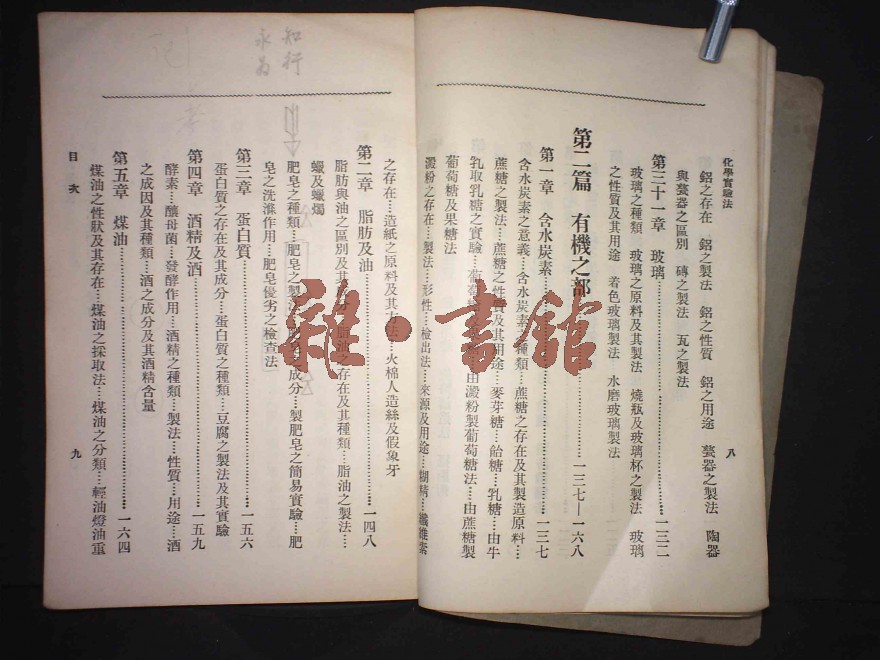 化學實驗法
八
鋁之存在 鋁之製法 鋁之性質 鋁之用途 甆器之製法 陶器
與甆器之區別 磚之製法 瓦之製法
第三十一章 玻璃……一三二
玻璃之種類 玻璃之原料及其製法 燒瓶及玻璃杯之製法 玻璃
之性質及其用途 着色玻璃製法 水磨玻璃製法
第二篇 有機之部……一三七—一六八
第一章 含水炭素……一三七
含水炭素之意義…含水炭素之種類…蔗糖之存在及其製造原料…
蔗糖之製法…蔗糖之性質及其用途…麥芽糖…飴糖…乳糖…由牛
乳取乳糖之實驗…葡萄糖 由澱粉製葡萄糖法…由蔗糖製
葡萄糖及果糖法
澱粉之存在…製法…形性…檢出法…來源及用途…糊精…纖維素
之存在…造紙之原料及其方法…火棉人造絲及假象牙
第二章 脂肪及油……一四八
脂肪與油之區別及其成分…脂油之存在及其種類…脂油之製法…
蠟及蠟燭
肥皂之種類…肥皂之製法…肥皂之成分…製肥皂之簡易實驗…肥
皂之洗滌作用…肥皂優劣之檢查法
第三章 蛋白質……一五六
蛋白質之存在及其成分…蛋白質之種類…豆腐之製法及其實驗
第四章 酒精及酒……一五九
酵素…釀母菌…發酵作用…酒精之種類…製法…性質…用途…酒
之成因及其種類…酒之成分及其酒精含量
第五章 煤油……一六四
煤油之性狀及其存在…煤油之採取法…煤油之分類…輕油燈油重
目次
九
知行
永為
雜·書館